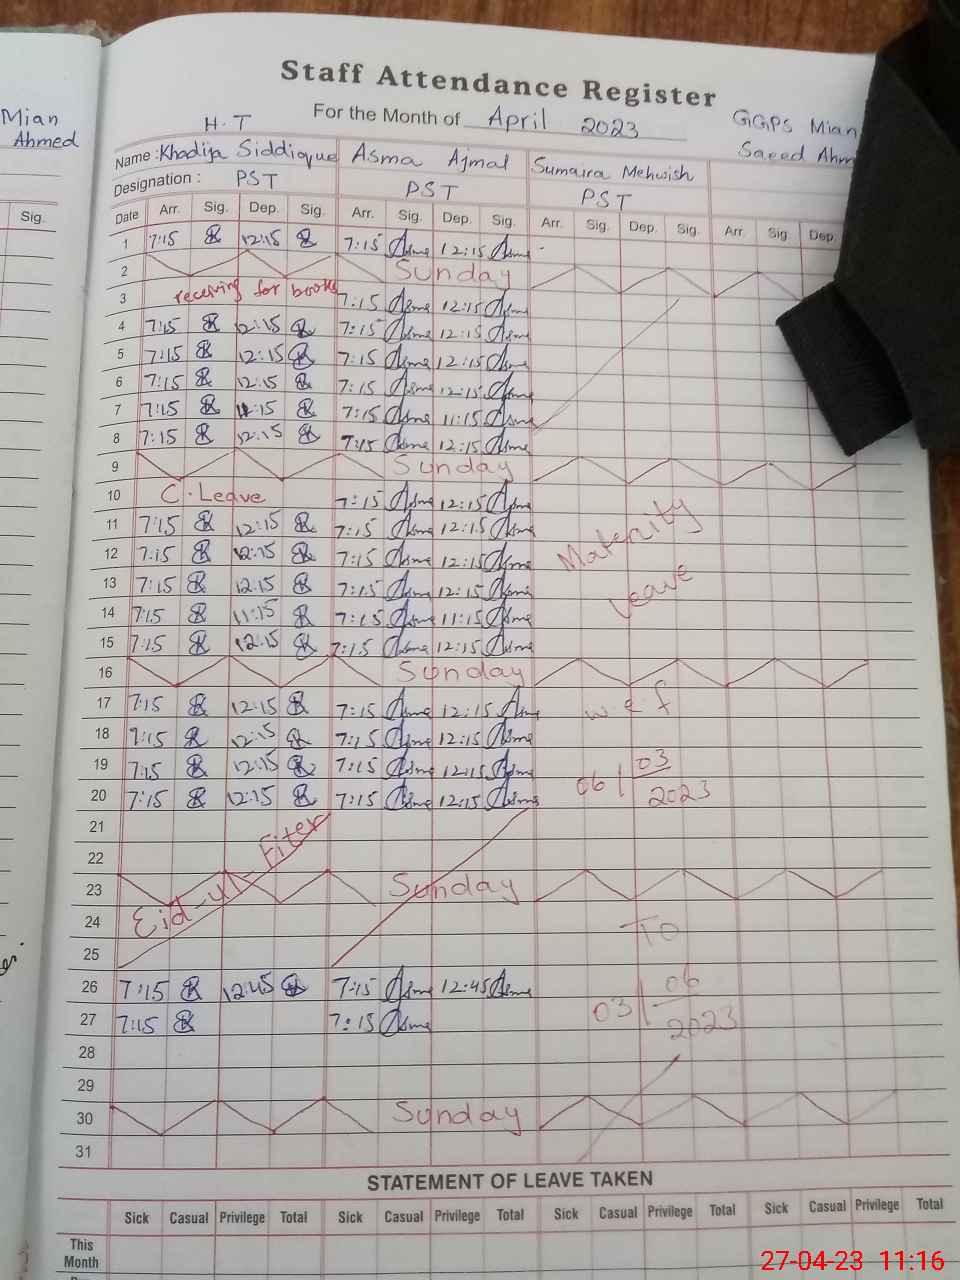 Mian
Ahmed
Sig.
Staff Attendance Register
For the Month of April 2023
GGPS Mian
Saeed Ahm
H.T
Name : Khadija Siddique Asma Ajmal Sumaira Mehwish
Designation : PST PST PST
Date Arr. Sig. Dep. Sig. Arr. Sig. Dep. Sig. Arr. Sig. Dep. Sig. Arr. Sig. Dep.
1 7:15 12:15 7:15 Asma 12:15 Asma
2 Sunday
3 receiving for books 7:15 Asma 12:15 Asma
4 7:15 12:15 7:15 Asma 12:15 Asma
5 7:15 12:15 7:15 Asma 12:15 Asma
6 7:15 12:15 7:15 Asma 12:15 Asma
7 7:15 11:15 7:15 Asma 11:15 Asma
8 7:15 12:15 7:15 Asma 12:15 Asma
9 Sunday
10 C. Leave 7:15 Asma 12:15 Asma
11 7:15 12:15 7:15 Asma 12:15 Asma
12 7:15 12:15 7:15 Asma 12:15 Asma Maternity
13 7:15 12:15 7:15 Asma 12:15 Asma Leave
14 7:15 11:15 7:15 Asma 11:15 Asma
15 7:15 12:15 7:15 Asma 12:15 Asma
16 Sunday
17 7:15 12:15 7:15 Asma 12:15 Asma w e f
18 7:15 12:15 7:15 Asma 12:15 Asma
19 7:15 12:15 7:15 Asma 12:15 Asma 06 | 03
20 7:15 12:15 7:15 Asma 12:15 Asma 2023
21
22 Eid-ul-Fiter
23 Sunday
24 To
25
26 7:15 12:45 7:15 Asma 12:45 Asma 03 | 06
27 7:15 7:15 Asma 2023
28
29
30 Sunday
31
STATEMENT OF LEAVE TAKEN
Sick Casual Privilege Total Sick Casual Privilege Total Sick Casual Privilege Total Sick Casual Privilege Total
This
Month
27-04-23 11:16